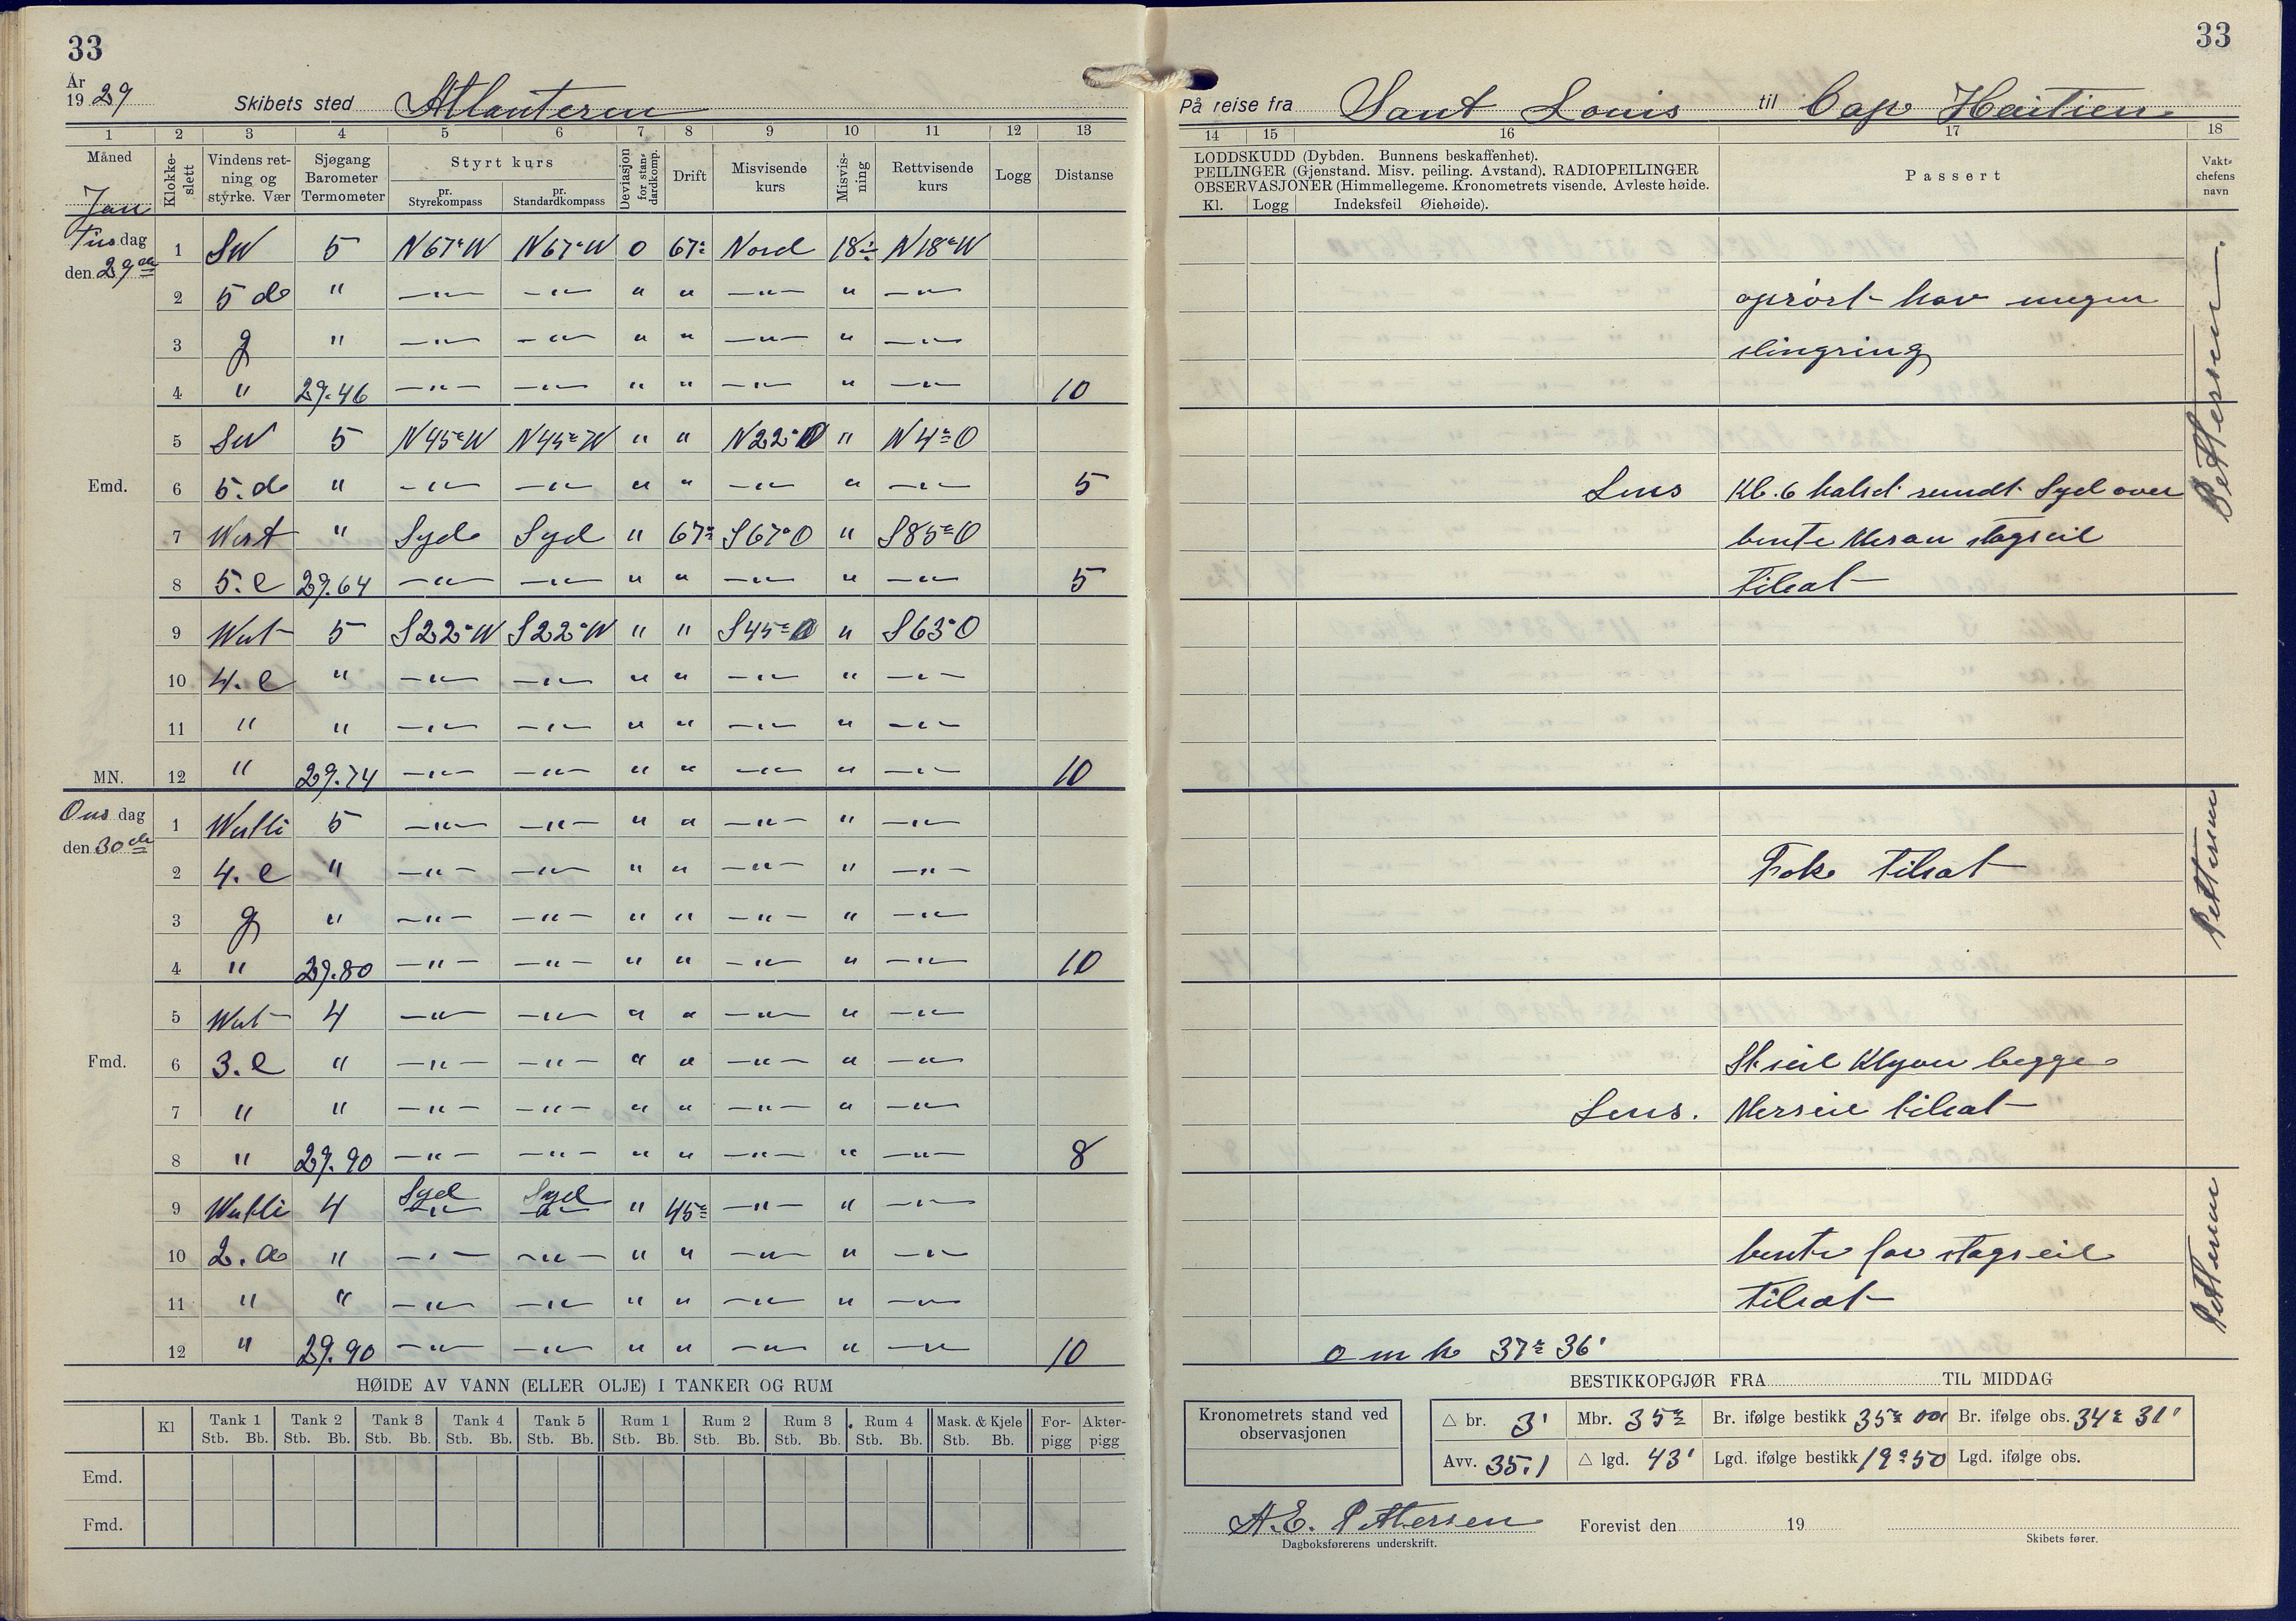 33
År 1929 Skibets sted Atlanteren
1 2 3 4 5 6 7 8 9 10 11 12 13
Måned Klokke-slett Vindens ret-ning og styrke. Vær Sjøgang Barometer Termometer Styrt kurs pr. Styrekompass pr. Standardkompass Deviasjon for stan-dardkomp. Drift Misvisende kurs Misvis-ning Rettvisende kurs Logg Distanse
Jan
Tirsdag den 29de
1 SW 5 N67°W N67°W 0 67° Nord 18÷ N18°W
2 5 d " —"— —"— " " —"— " —"—
3 g " —"— —"— " " —"— " —"—
4 " 29.46 —"— —"— " " —"— " —"— 10
5 SW 5 N45°W N45°W " " N22°O " N4°O
Emd. 6 5.d " —"— —"— " " —"— " —"— 5
7 West " Syd Syd " 67° S67°O " S85°O
8 5.e 29.64 —"— —"— " " —"— " —"— 5
9 West 5 S22°W S22°W " " S45°O " S63°O
10 4.e " —"— —"— " " —"— " —"—
11 " " —"— —"— " " —"— " —"—
MN. 12 " 29.74 —"— —"— " " —"— " —"— 10
Onsdag den 30de
1 Westli 5 —"— —"— " " —"— " —"—
2 4.e " —"— —"— " " —"— " —"—
3 g " —"— —"— " " —"— " —"—
4 " 29.80 —"— —"— " " —"— " —"— 10
5 West 4 —"— —"— " " —"— " —"—
Fmd. 6 3.e " —"— —"— " " —"— " —"—
7 " " —"— —"— " " —"— " —"—
8 " 29.90 —"— —"— " " —"— " —"— 8
9 Westli 4 Syd Syd " 45° —"— " —"—
10 2.a " —"— —"— " " —"— " —"—
11 " " —"— —"— " " —"— " —"—
12 " 29.90 —"— —"— " " —"— " —"— 10
HØIDE AV VANN (ELLER OLJE) I TANKER OG RUM
Kl Tank 1 Tank 2 Tank 3 Tank 4 Tank 5 Rum 1 Rum 2 Rum 3 Rum 4 Mask. & Kjele For-pigg Akter-pigg
Stb. Bb. Stb. Bb. Stb. Bb. Stb. Bb. Stb. Bb. Stb. Bb. Stb. Bb. Stb. Bb. Stb. Bb. Stb. Bb.
Emd.
Fmd.
33
På reise fra Sant Louis til Cap Haitien
14 15 16 17 18
LODDSKUDD (Dybden. Bunnens beskaffenhet).
PEILINGER (Gjenstand. Misv. peiling. Avstand). RADIOPEILINGER
OBSERVASJONER (Himmellegeme. Kronometrets visende. Avleste høide.
Kl. Logg Indeksfeil Øiehøide).
Passert
Vakt-chefens navn
oprørt hav megen
slingring
Lens Kl. 6 halsd rundt Syd over
bente Mesan stagseil
tilsat
Pettersen
Foke tilsat
Pettersen
St seil Klyver begge
Lens. Merseil tilsat
bente for stagseil
tilsat
Pettersen
o m h 37° 36'
BESTIKKOPGJØR FRA TIL MIDDAG
Kronometrets stand ved observasjonen
△ br. 3' Mbr. 35° Br. ifølge bestikk 35° 00 Br. ifølge obs. 34° 31'
Avv. 35.1 △ lgd. 43' Lgd. ifølge bestikk 19°50 Lgd. ifølge obs.
A.E. Pettersen Forevist den 19
Dagboksførerens underskrift. Skibets fører.